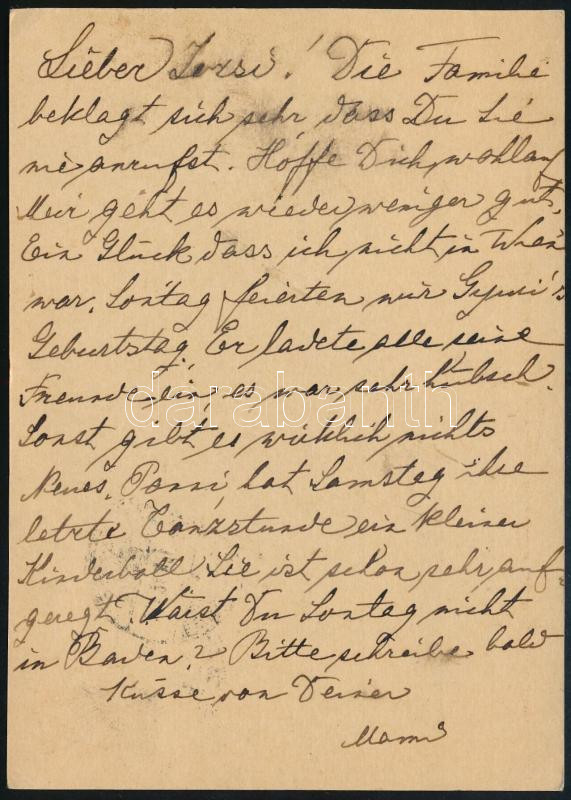 Lieber Jozsi! Die Familie
beklagt sich sehr dass Du Sie
nie anrufst. Hoffe Dich wohlauf
Mir geht es wieder weniger gut.
Ein Glück dass ich nicht in Wien
war. Sontag feierten wir Gyuri's
Geburtstag. Er ladete alle seine
Freunde ein, es war sehr hübsch.
Sonst gibt es wirklich nichts
Neues. hat Samstag ihre
letzte Tanzstunde ein kleiner
Kinderball Sie ist schon sehr auf-
geregt. Wärst Du Sontag nicht
in Baden? Bitte schreibe bald
Küsse von Deiner
Mami
darabanth